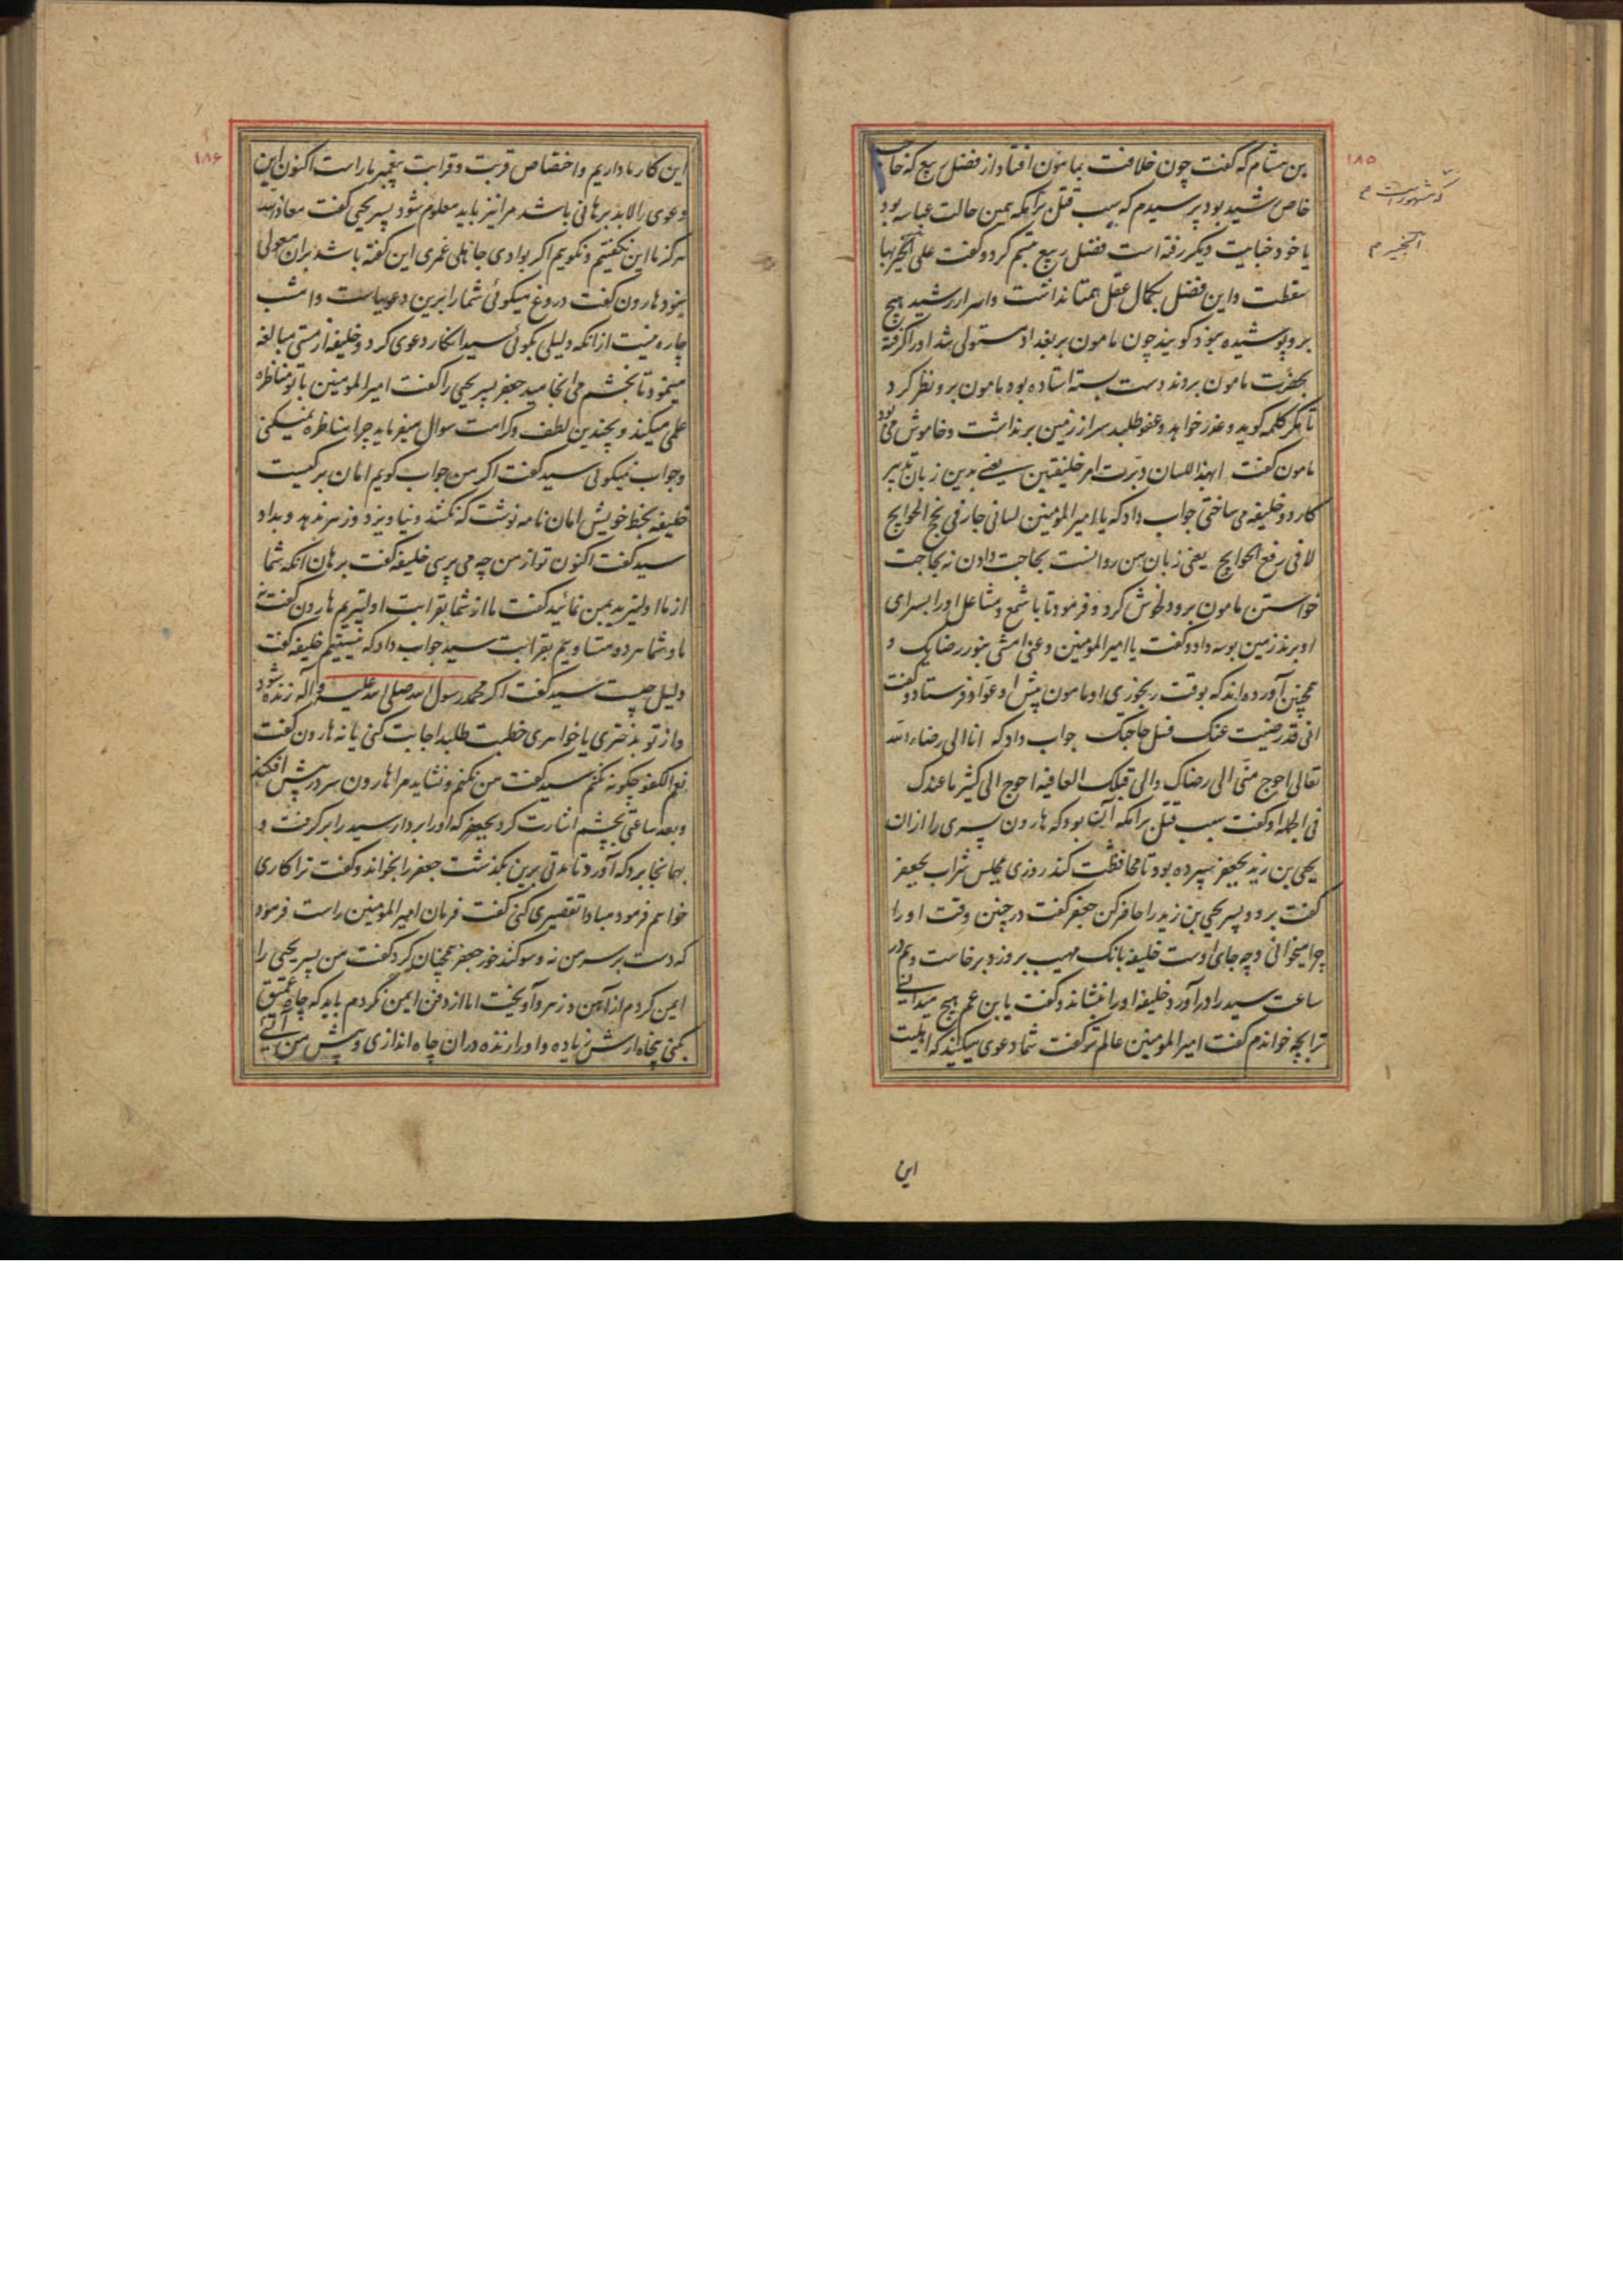 ۱۸۵
بن هشام که گفت چون خلافت بمامون افتاد از فضل ربیع که حاجب
خاص رشید بود پرسیدم که سبب قتل برامکه همین حالت عباسه بود
یا خود خیانت دیگر رفته است فضل ربیع تبسم کرد و گفت علی الخبیر بها
سقطت و این فضل بکمال عقل همتا نداشت و اسرار رشید هیچ
برو پوشیده نبود گویند چون مامون بر بغداد مستولی شد او را گرفته
بحضرت مامون بردند دست بسته استاده بود مامون برو نظر کرد
تا مگر کلمه گوید و عذر خواهد و عفو طلبد سر از زمین برنداشت و خاموش می بود
مامون گفت ابهذا اللسان دبرت امر خلیفتین یعنی بدین زبان تدبیر
کار دو خلیفه می ساختی جواب داد که یا امیر المومنین لسانی جار فی نجح الحوایج
لا فی رفع الحوایج یعنی زبان من روانست بحاجت دادن نه بحاجت
خواستن مامون برو دلخوش کرد و فرمود تا با شمع و مشاعل او را بسرای
او برند زمین بوسه داد و گفت یا امیر المومنین دعنی امشی بنور رضایک و
همچنین آورده اند که بوقت رنجوری او مامون پیش او عواد فرستاد و گفت
انی قد رضیت عنک فسل حاجتک جواب داد که انا الی رضاء الله
تعالی احوج منی الی رضاک و الی قبلک العافیه احوج الی کثیر ما عندک
فی الجمله او گفت سبب قتل برامکه آن بود که هارون پسری را از ان
یحیی بن زید بجعفر سپرده بود تا محافظت کند روزی مجلس شراب بجعفر
گفت برو و پسر یحیی بن زید را حاضر کن جعفر گفت درچنین وقت او را
چرا میخوانی و چه جای اوست خلیفه بانک مهیب برو زد برخاست و هم در
ساعت سید را در آورد خلیفه او را بنشاند و گفت یا بن عم هیچ میدانی
ترا بچه خواندم گفت امیر المومنین عالم تر گفت شما دعوی میکنید که اهلیت
این
۱۸۶
این کار ما داریم و اختصاص قربت و قرابت پیغمبر ما راست اکنون این
دعوی را لابد برهانی باشد مرا نیز باید معلوم شود پسر یحیی گفت معاذ الله
هرگز ما این نگفتیم و نگوییم اگر بوادی جاهلی غمری این گفته باشد بران معولی
نبود هارون گفت دروغ میگوئی شما را برین دعویهاست و امشب
چاره نیست از انکه دلیلی بگوئی سید انکار دعوی کرد و خلیفه از مستی مبالغه
مینمود تا بخشم می انجامید جعفر پسر یحیی را گفت امیر المومنین با تو مناظره
علمی میکند و بچندین لطف و کرامت سوال میفرماید چرا مناظره نمیکنی
و جواب نمیگوئی سید گفت اگر من جواب گویم امان بر کیست
خلیفه بخط خویش امان نامه نوشت که نکشد و نیاویزد و زهر ندهد و بداد
سید گفت اکنون تو از من چه می پرسی خلیفه گفت برهان انکه شما
از ما اولیترید بمن نمائید گفت ما از شما بقرابت اولیتریم هارون گفت نه
ما و شما هر دو متساویم بقرابت سید جواب داد که نیستیم خلیفه گفت
دلیل چیست سید گفت اگر محمد رسول الله صلی الله علیه و آله زنده شود
و از تو دختری یا خواهری خطبت طلبد اجابت کنی یا نه هارون گفت
نعم الکفو چگونه نکنم سید گفت من نکنم و نشاید مرا هارون سر در پیش افکند
و بعد ساعتی بچشم اشارت کرد بجعفر که او را بردار سید را برگرفت و
بهانجا برد که آورد تا مدتی برین بگذشت جعفر را بخواند و گفت ترا کاری
خواهم فرمود مبادا تقصیری کنی گفت فرمان امیر المومنین راست فرمود
که دست بر سر من نه و سوگند خور جعفر همچنان کرد گفت من پسر یحیی را
ایمن کردم از آهن و زهر و آویخت اما از دفن ایمن نکردم باید که چاه عمیق
بکنی پنجاه ارش زیاده و او را زنده دران چاه اندازی و پیش من آئی